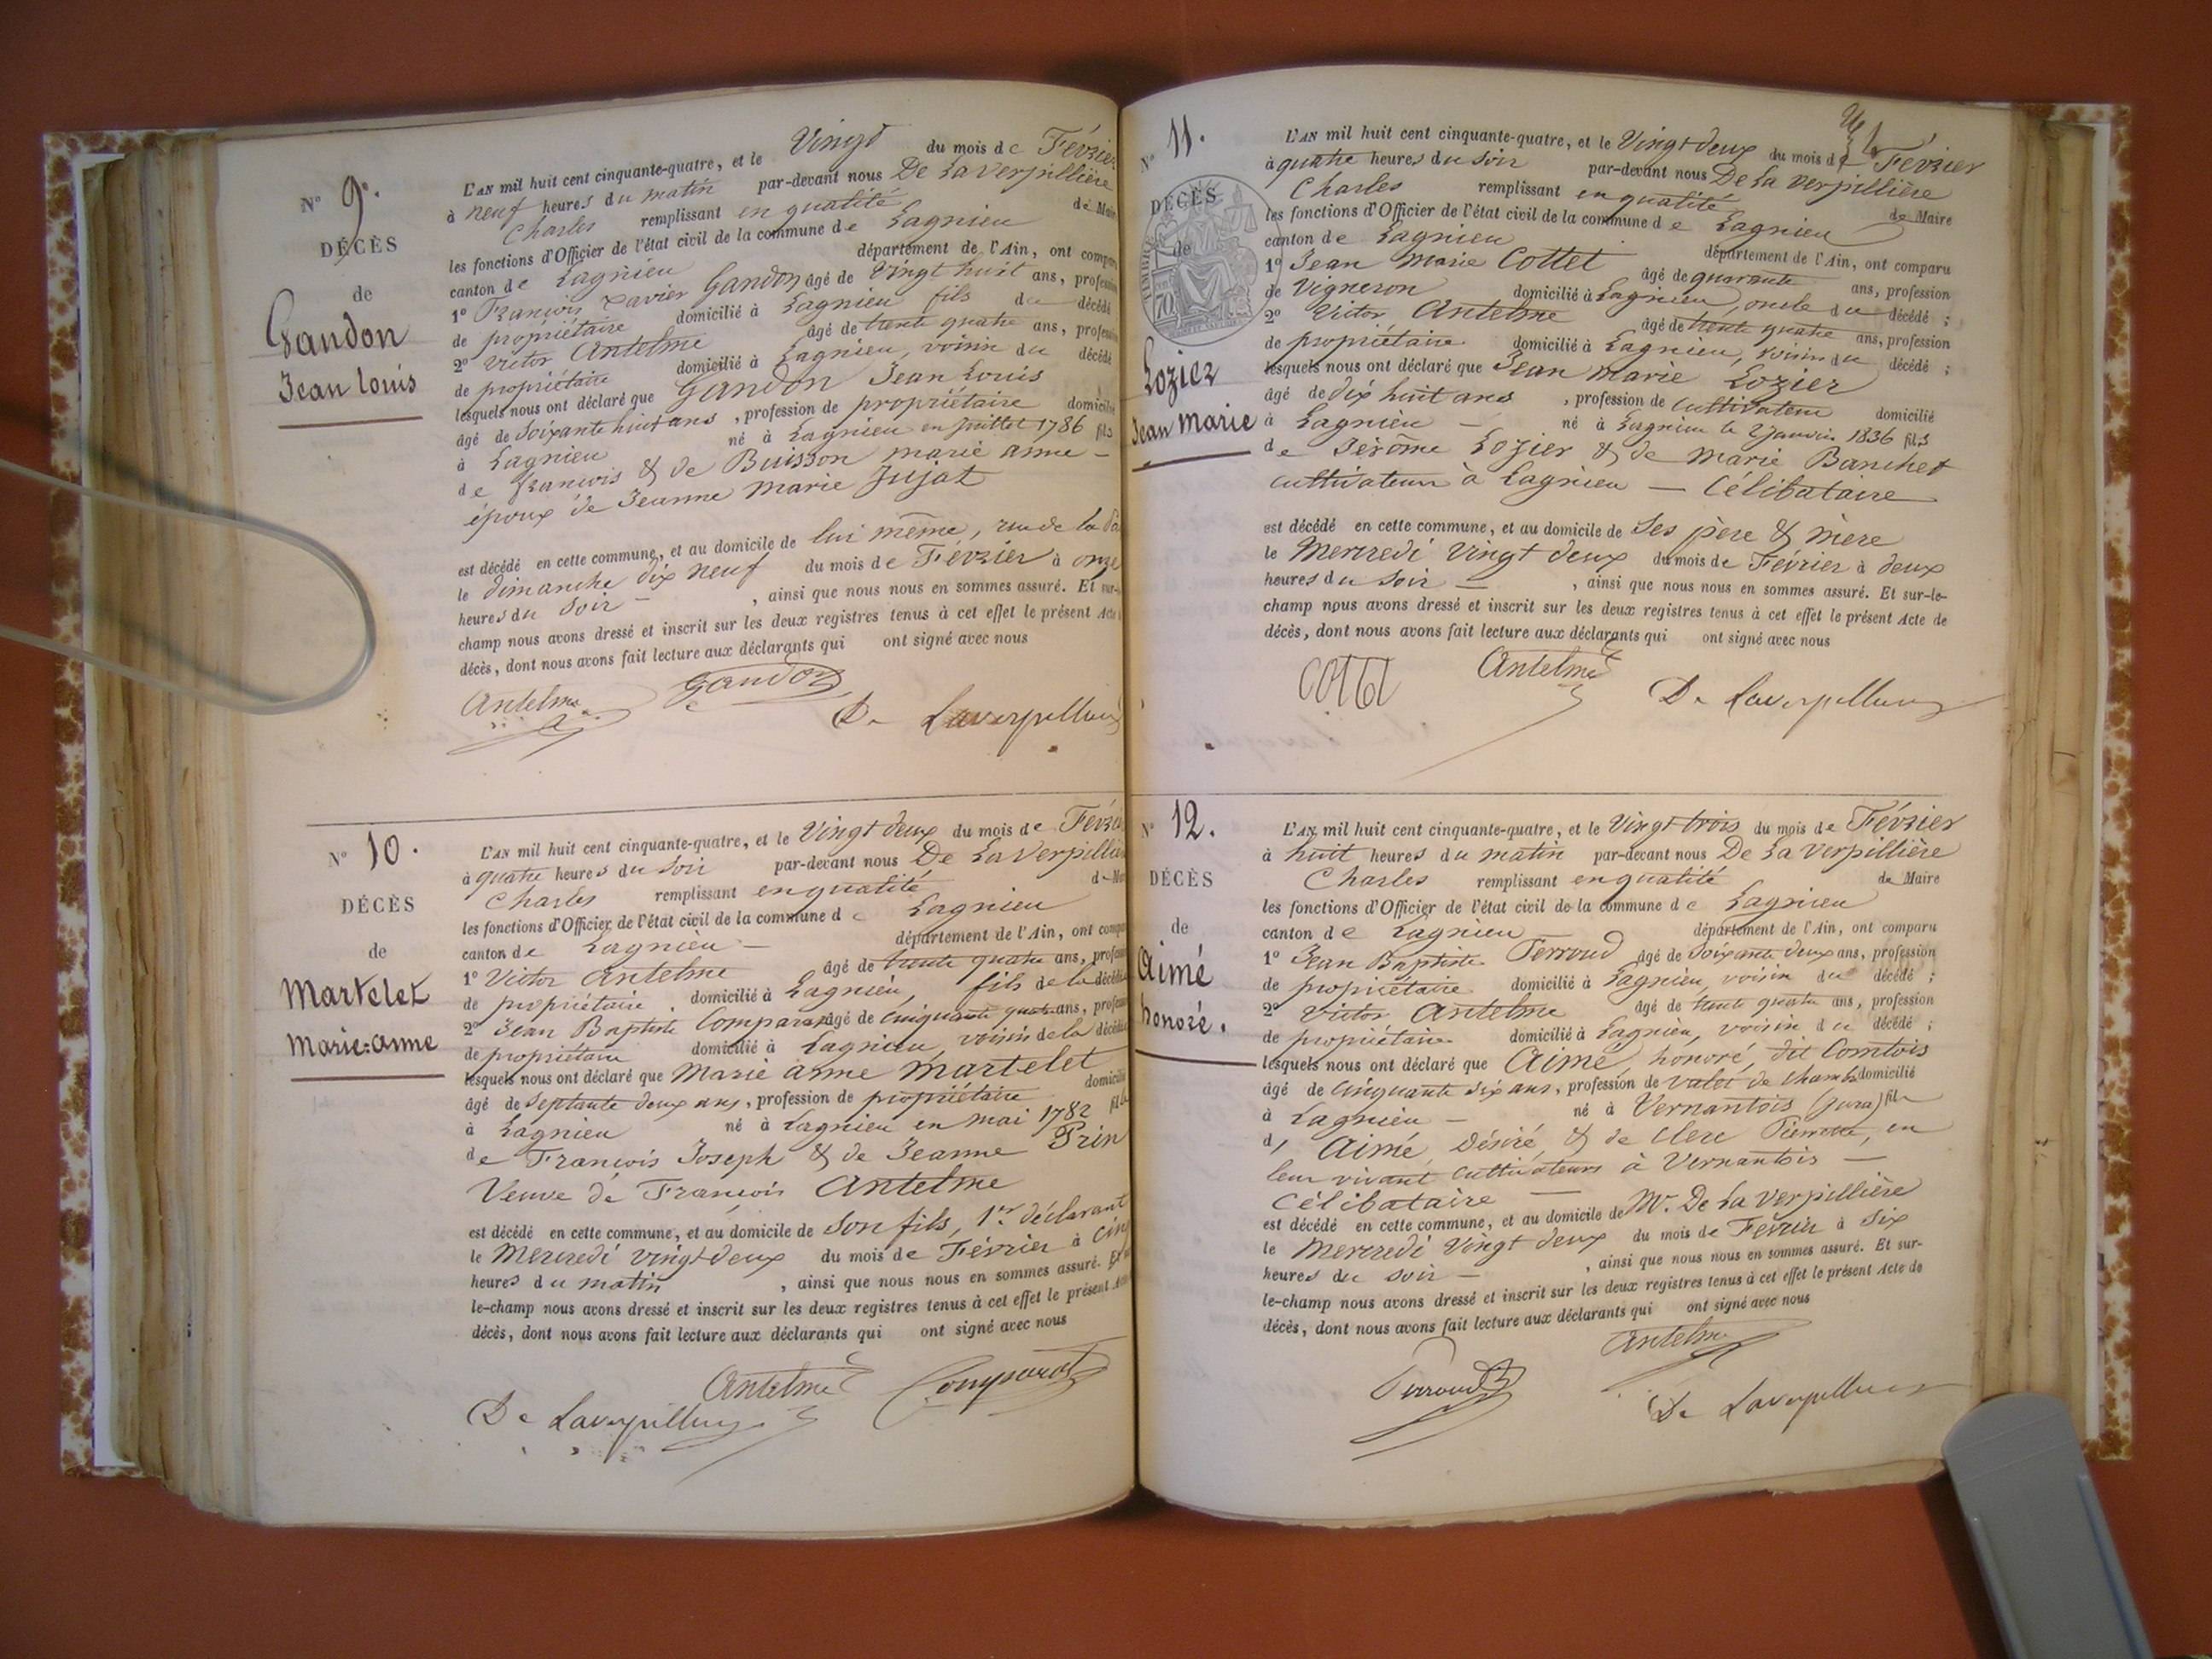 N° 9.
DÉCÈS
de
Gandon
Jean Louis
L'AN mil huit cent cinquante-quatre, et le Vingt du mois de Février
à neuf heures du matin par-devant nous De La Verpillière
Charles remplissant en qualité de Maire
les fonctions d'Officier de l'état civil de la commune de Lagnieu
canton de Lagnieu département de l'Ain, ont compa
1° François Xavier Gandon âgé de Vingt huit ans, profession
de propriétaire domicilié à Lagnieu fils du décédé
2° Victor Antelme âgé de trente quatre ans, profession
de propriétaire domicilié à Lagnieu, voisin du décédé
lesquels nous ont déclaré que Gandon Jean Louis
âgé de Soixante huit ans, profession de propriétaire domicilié
à Lagnieu né à Lagnieu en juillet 1786 fils
de françois & de Buisson marie anne -
époux de Jeanne Marie Jujat
est décédé en cette commune, et au domicile de lui même, rue de la
le dimanche dix neuf du mois de Février à onze
heures du Soir - , ainsi que nous nous en sommes assuré. Et sur-
champ nous avons dressé et inscrit sur les deux registres tenus à cet effet le présent Acte
décès, dont nous avons fait lecture aux déclarants qui ont signé avec nous
Antelme Gandon
De Laverpillière
N° 10.
DÉCÈS
de
Martelet
Marie=anne
L'AN mil huit cent cinquante-quatre, et le Vingt deux du mois de Févri
à quatre heures du Soir par-devant nous De La Verpillière
Charles remplissant en qualité de
les fonctions d'Officier de l'état civil de la commune de Lagnieu
canton de Lagnieu - département de l'Ain, ont compa
1° Victor Antelme âgé de trente quatre ans, profession
de propriétaire domicilié à Lagnieu, fils de la décédée
2° Jean Baptiste Comparat âgé de cinquante quatre ans, profession
de propriétaire domicilié à Lagnieu, voisin de la décédée
lesquels nous ont déclaré que Marie Anne Martelet
âgé de Septante deux ans, profession de propriétaire domicilié
à Lagnieu né à Lagnieu en mai 1782 fille
de François Joseph & de Jeanne Prin
Veuve de François Antelme
est décédé en cette commune, et au domicile de Son fils, 1er déclarant
le Mercredi vingt deux du mois de Février à Cinq
heures du matin , ainsi que nous nous en sommes assuré. Et
le-champ nous avons dressé et inscrit sur les deux registres tenus à cet effet le présent
décès, dont nous avons fait lecture aux déclarants qui ont signé avec nous
Antelme Comparat
De Laverpillière
N° 11.
DÉCÈS
de
70
Lozier
Jean Marie
L'AN mil huit cent cinquante-quatre, et le Vingt deux du mois de Février
à quatre heures du Soir par-devant nous De La Verpillière
Charles remplissant en qualité de Maire
les fonctions d'Officier de l'état civil de la commune de Lagnieu
canton de Lagnieu département de l'Ain, ont comparu
1° Jean Marie Cottet âgé de quarante ans, profession
de Vigneron domicilié à Lagnieu, oncle du décédé ;
2° Victor Antelme âgé de trente quatre ans, profession
de propriétaire domicilié à Lagnieu, voisin du décédé ;
lesquels nous ont déclaré que Jean Marie Lozier
âgé de dix huit ans , profession de Cultivateur domicilié
à Lagnieu - né à Lagnieu le 2 Janvier 1836 fils
de Jérôme Lozier & de Marie Banchet
cultivateurs à Lagnieu - Célibataire
est décédé en cette commune, et au domicile de Ses père & mère
le Mercredi Vingt deux du mois de Février à deux
heures du Soir - , ainsi que nous nous en sommes assuré. Et sur-le-
champ nous avons dressé et inscrit sur les deux registres tenus à cet effet le présent Acte de
décès, dont nous avons fait lecture aux déclarants qui ont signé avec nous
Cottet Antelme
De Laverpillière
N° 12.
DÉCÈS
de
Aimé
honoré.
L'AN mil huit cent cinquante-quatre, et le Vingt trois du mois de Février
à huit heures du matin par-devant nous De La Verpillière
Charles remplissant en qualité de Maire
les fonctions d'Officier de l'état civil de la commune de Lagnieu
canton de Lagnieu département de l'Ain, ont comparu
1° Jean Baptiste Ferroud âgé de Soixante deux ans, profession
de propriétaire domicilié à Lagnieu, voisin du décédé ;
2° Victor Antelme âgé de trente quatre ans, profession
de propriétaire domicilié à Lagnieu, voisin du décédé ;
lesquels nous ont déclaré que Aimé, honoré, dit Comtois
âgé de Cinquante Six ans, profession de Valet de Chambre domicilié
à Lagnieu - né à Vernantois (jura) fils
d, Aimé Désiré, & de Clerc Pierrette, en
leur vivant Cultivateurs à Vernantois -
Célibataire -
est décédé en cette commune, et au domicile de Mr. De La Verpillière
le Mercredi Vingt deux du mois de Février à Six
heures du Soir - , ainsi que nous nous en sommes assuré. Et sur-
le-champ nous avons dressé et inscrit sur les deux registres tenus à cet effet le présent Acte de
décès, dont nous avons fait lecture aux déclarants qui ont signé avec nous
Antelme
Ferroud
De Laverpillière